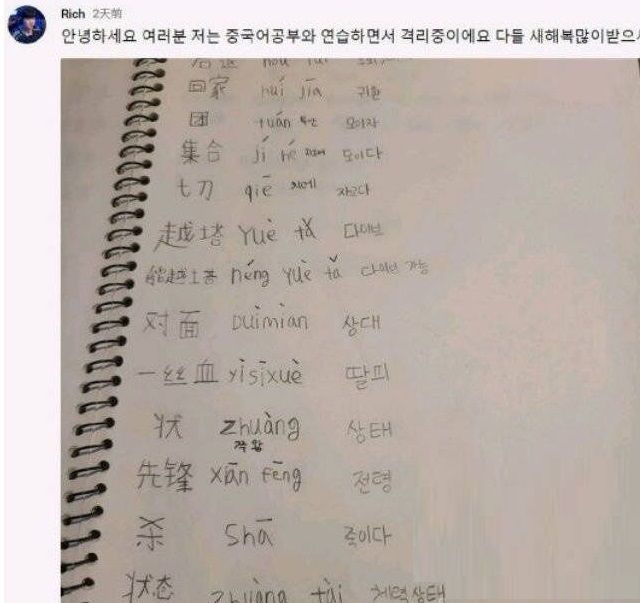 Rich 2天前
안녕하세요 여러분 저는 중국어공부와 연습하면서 격리중이에요 다들 새해복많이받으
回家 huí jiā 귀환
团 tuán 모이자
集合 jí hé 모이다
切 qiē 자르다
越塔 Yuè tǎ 다이브
能越塔 néng yuè tǎ 다이브 가능
对面 Duìmiàn 상대
一丝血 yìsīxuè 딸피
状 zhuàng 상태
쭈왕
先锋 xiān fēng 전령
杀 Shā 죽이다
状态 zhuàng tài 체력상태